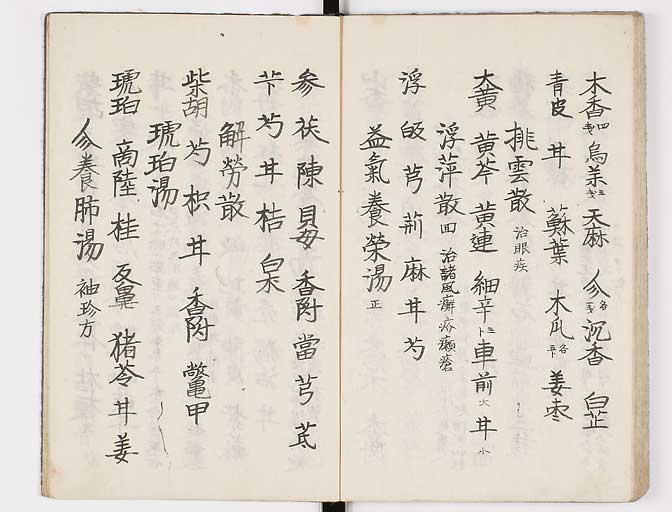 木香 四 烏薬 天麻 參 各 沉香 白芷
青皮 井 蘇葉 木瓜 各 姜枣
排雲散 治眼疾
大黄 黄芩 黄連 細辛 車前 大 井 小
浮萍散 四 治諸風癬疥癩瘡
浮 皈 芎 荊 麻 井 芍
益氣養榮湯 正
参 茯 陳 貝母 香附 當 芎 芪
芐 芍 井 桔 白朮
解勞散
柴胡 芍 枳 井 香附 鱉甲
琥珀湯
琥珀 商陸 桂 反鼻 猪苓 井 姜
參養肺湯 袖珍方